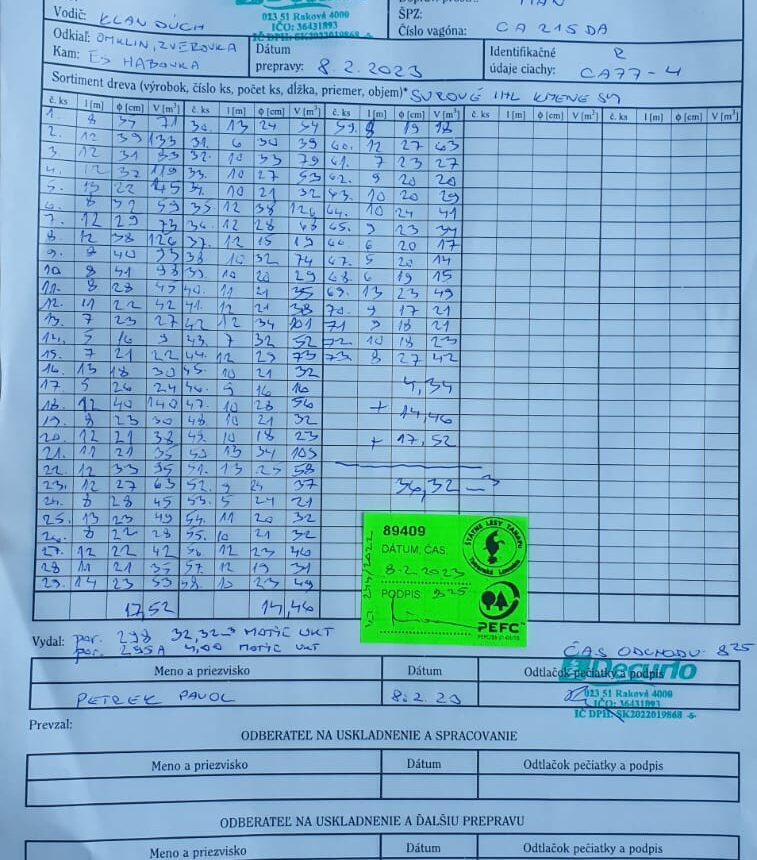 Vodič: KLAN DÚCH
023 51 Raková 4000
IČO: 36431893
ŠPZ:
Číslo vagóna: CA 215 DA
Odkiaľ: OMKLIN, ZVEROVKA
Kam: ES HABOVKA
Dátum
prepravy: 8.2.2023
Identifikačné
údaje ciachy: CA77-4
Sortiment dreva (výrobok, číslo ks, počet ks, dĺžka, priemer, objem)* SUROVÉ IHL KMENE
č. ks l [m] ϕ [cm] V [m³] č. ks l [m] ϕ [cm] V [m³] č. ks l [m] ϕ [cm] V [m³] č. ks l [m] ϕ [cm] V [m³] č. ks l [m] ϕ [cm] V [m³]
1. 8 34 71 30. 13 24 54 59. 8 19 18
2. 12 39 133 31. 6 30 39 60. 12 27 63
3. 12 31 83 32. 10 33 79 61. 7 23 27
4. 12 37 119 33. 10 27 53 62. 9 20 20
5. 13 22 45 34. 10 21 32 63. 10 20 29
6. 8 32 59 35. 12 38 126 64. 10 24 41
7. 12 29 73 36. 12 28 68 65. 9 23 34
8. 12 38 126 37. 12 15 19 66. 6 20 17
9. 8 40 93 38 10 32 74 67. 5 20 14
10 8 41 98 39. 10 20 29 68. 6 19 15
11. 8 28 45 40. 11 21 35 69. 13 23 49
12. 11 22 42 41. 12 21 38 70. 9 17 21
13. 7 23 27 42 12 34 101 71 9 18 21
14. 5 16 9 43. 7 32 52 72. 10 18 23
15. 7 21 22 44. 12 29 73 73. 8 27 42
16. 13 18 30 45. 10 21 32
17 5 26 24 46. 9 16 16 4,34
18. 12 40 140 47. 10 28 56 + 14,46
19. 8 23 30 48. 10 21 32
20. 12 21 38 49. 10 18 23 + 17,52
21. 11 21 35 50 13 34 109
22. 12 33 95 51. 13 25 58
23. 12 27 63 52. 9 24 37 36,32 m³
24. 8 28 45 53. 5 24 21
25. 13 23 49 54. 11 20 32
26. 8 22 28 55. 10 21 32
27. 12 22 42 56. 12 23 46
28 11 21 35 57. 12 19 31
29. 14 23 53 58. 10 23 49
17,52 14,46
89409
DÁTUM, ČAS,
8.2.2023
PODPIS 825
ŠTÁTNE LESY TANAPU
Tatranská Lomnica
PEFC™
Vydal: por. 298 32,32 m³ MOTIC UKT
por. 295A 4,00 MOTIC UKT
ČAS ODCHODU: 8 25
Meno a priezvisko Dátum Odtlačok pečiatky a podpis
PETREK PAVOL 8.2.23
Decurio
023 51 Raková 4000
IČO: 36431893
IČ DPH: SK2022019868 -5-
Prevzal:
ODBERATEĽ NA USKLADNENIE A SPRACOVANIE
Meno a priezvisko Dátum Odtlačok pečiatky a podpis
ODBERATEĽ NA USKLADNENIE A ĎALŠIU PREPRAVU
Meno a priezvisko Dátum Odtlačok pečiatky a podpis